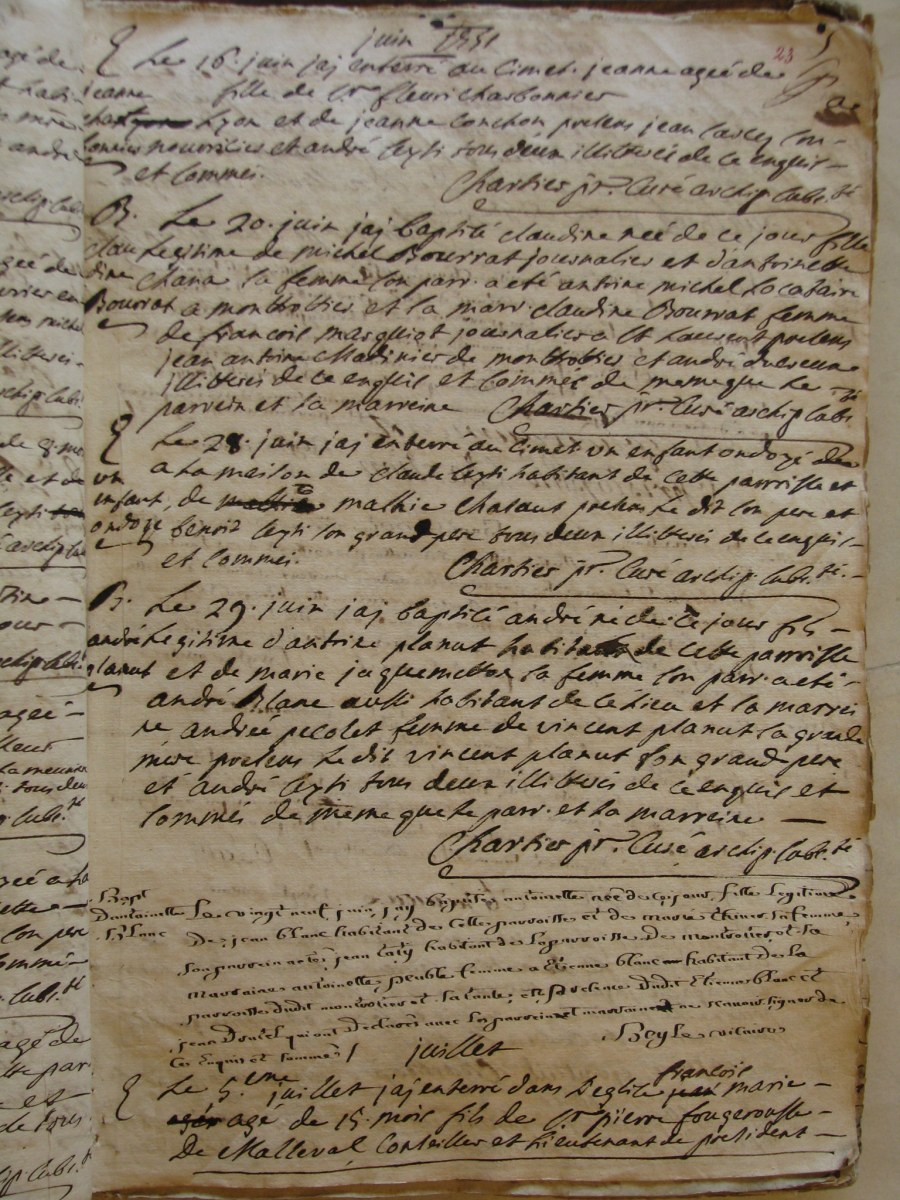 juin 1751
23
E Le 16. juin jaj enterré au Cimet. jeanne ageé de
jeanne fille de Sr. fleuri charbonnier
Lyon et de jeanne Conchon presens jean
nourricier et andré Ceyti tous deux illitterés de ce enquis
et Sommés.
Chartier pr. Curé archip. Subt. té
B. Le 20. juin jaj baptisé claudine neé de ce jour fille
clau Legitime de michel Bourrat journalier et d'antoinette
dine Chana sa femme son parr. a été antoine michel Locataire
Bourrat a montrottier et la marr. claudine Bourrat femme
de françois journalier a St Laurent presens
jean antoine Madinier de montrottier et andré
illitterés de ce enquis et Sommés de meme que le
parrein et la marreine Chartier pr. Curé archip. Subt.
E Le 28. juin jaj enterré au Cimet un enfant ondoyé
un a la maison de claude Ceyti habitant de cette parroisse et
enfant de mathie Chataut presens Le dit son pere et
ondoye benoit Ceyti son grand pere tous deux illitterés de ce enquis
et Sommés.
Chartier pr. Curé archip. Subt. té.
B. Le 29. juin jaj baptisé andré né de ce jour fils
andré Legitime d'antoine planut habitant de cette parroisse
planut et de marie jaquemetton sa femme son parr. a eté
andré Blanc aussi habitant de ce lieu et la marrei
ne andreé pecolet femme de vincent planut sa grand
mere presens Le dit vincent planut son grand pere
et andré Ceyti tous deux illitterés de ce enquis et
Sommés de meme que le parr. et la marreine
Chartier pr. Curé archip. Subt. té
Bapt
D'antoinette Le vingt neuf juin j'ay baptisé antoinette née de ce jour fille legitime
Blanc De jean blanc habitant de cette parroisse et de marie sa femme
son parrein a eté jean habitant de la parroisse de montrotier et la
marraine antoinette femme a Etienne blanc habitant de la
parroisse dudit montrotier et sa tante; en presence dudit Etienne blanc et
jean qui ont declarés avec les parrein et marraine ne scavoir signer de
ce Enquis et sommés / Beyle vicaire
juillet
E Le 5.eme juillet jaj enterré dans L'eglise françois marie
agé de 15. mois fils de Sr pierre fougerousse
De Malleval Conseiller et Lieutenant de president